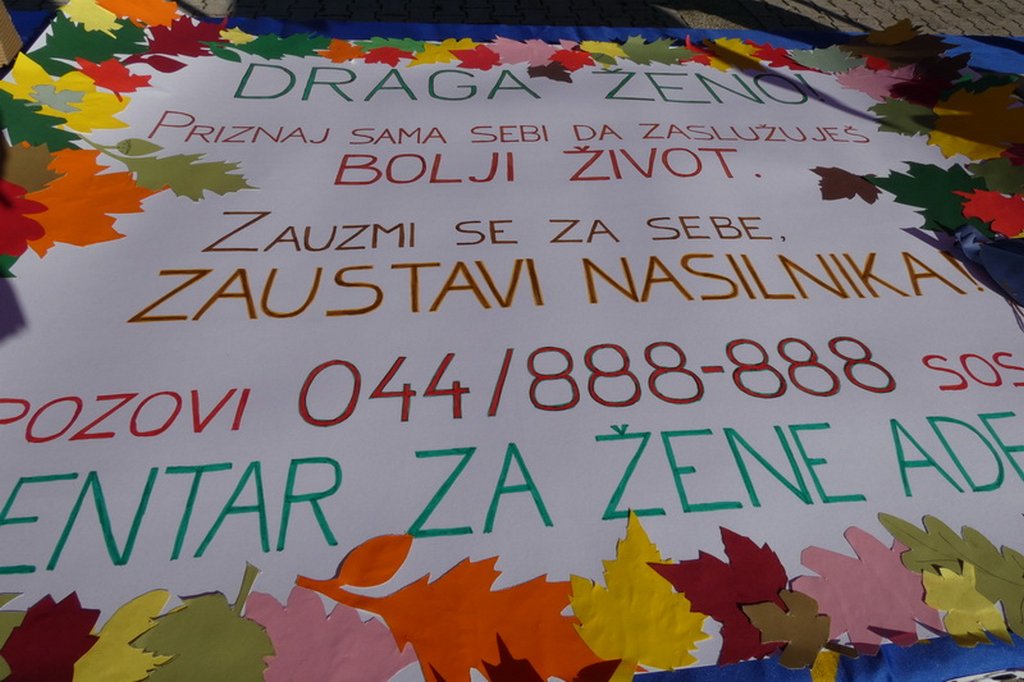 DRAGA ŽENO!
PRIZNAJ SAMA SEBI DA ZASLUŽUJEŠ
BOLJI ŽIVOT.
ZAUZMI SE ZA SEBE,
ZAUSTAVI NASILNIKA!
POZOVI 044/888-888 SOS
ENTAR ZA ŽENE ADE